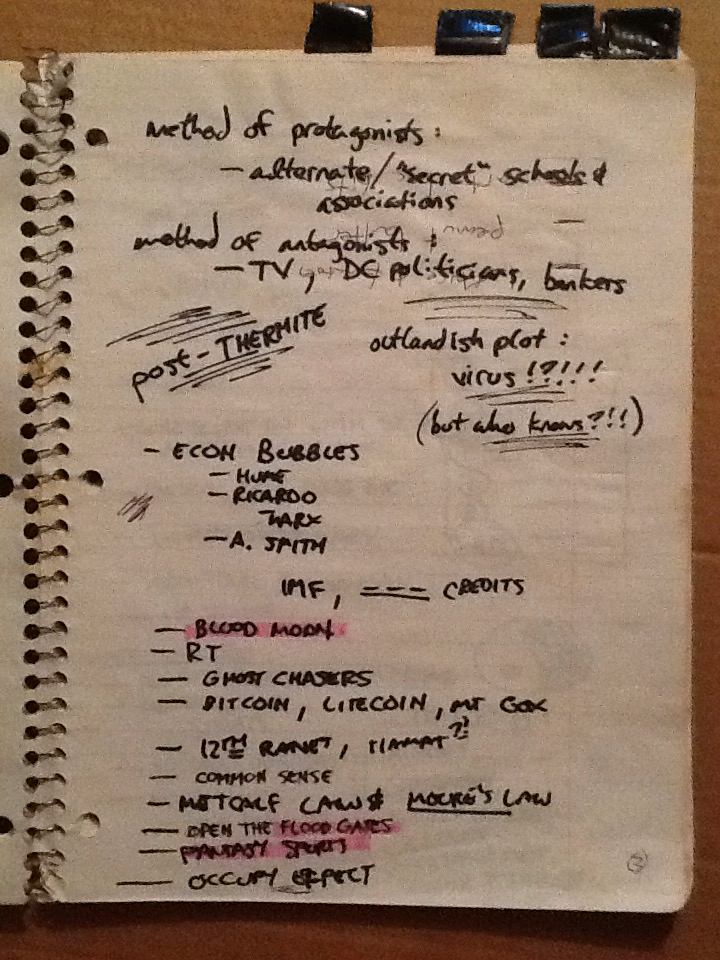 method of protagonists:
- alternate/"secret" schools &
associations
method of antagonists:
- TV, DC politicians, bankers
post-THERMITE
outlandish plot:
virus!?!!!
(but who knows?!!)
- ECON BUBBLES
- HUME
- RICARDO
MARX
- A. SMITH
IMF, --- CREDITS
- BLOOD MOON
- RT
- GHOST CHASERS
- BITCOIN, LITECOIN, MT GOX
- 12TH PLANET, TIAMAT?!
- COMMON SENSE
- METCALF LAW & MOORE'S LAW
- OPEN THE FLOOD GATES
- FANTASY SPORTS
- OCCUPY EFFECT
3